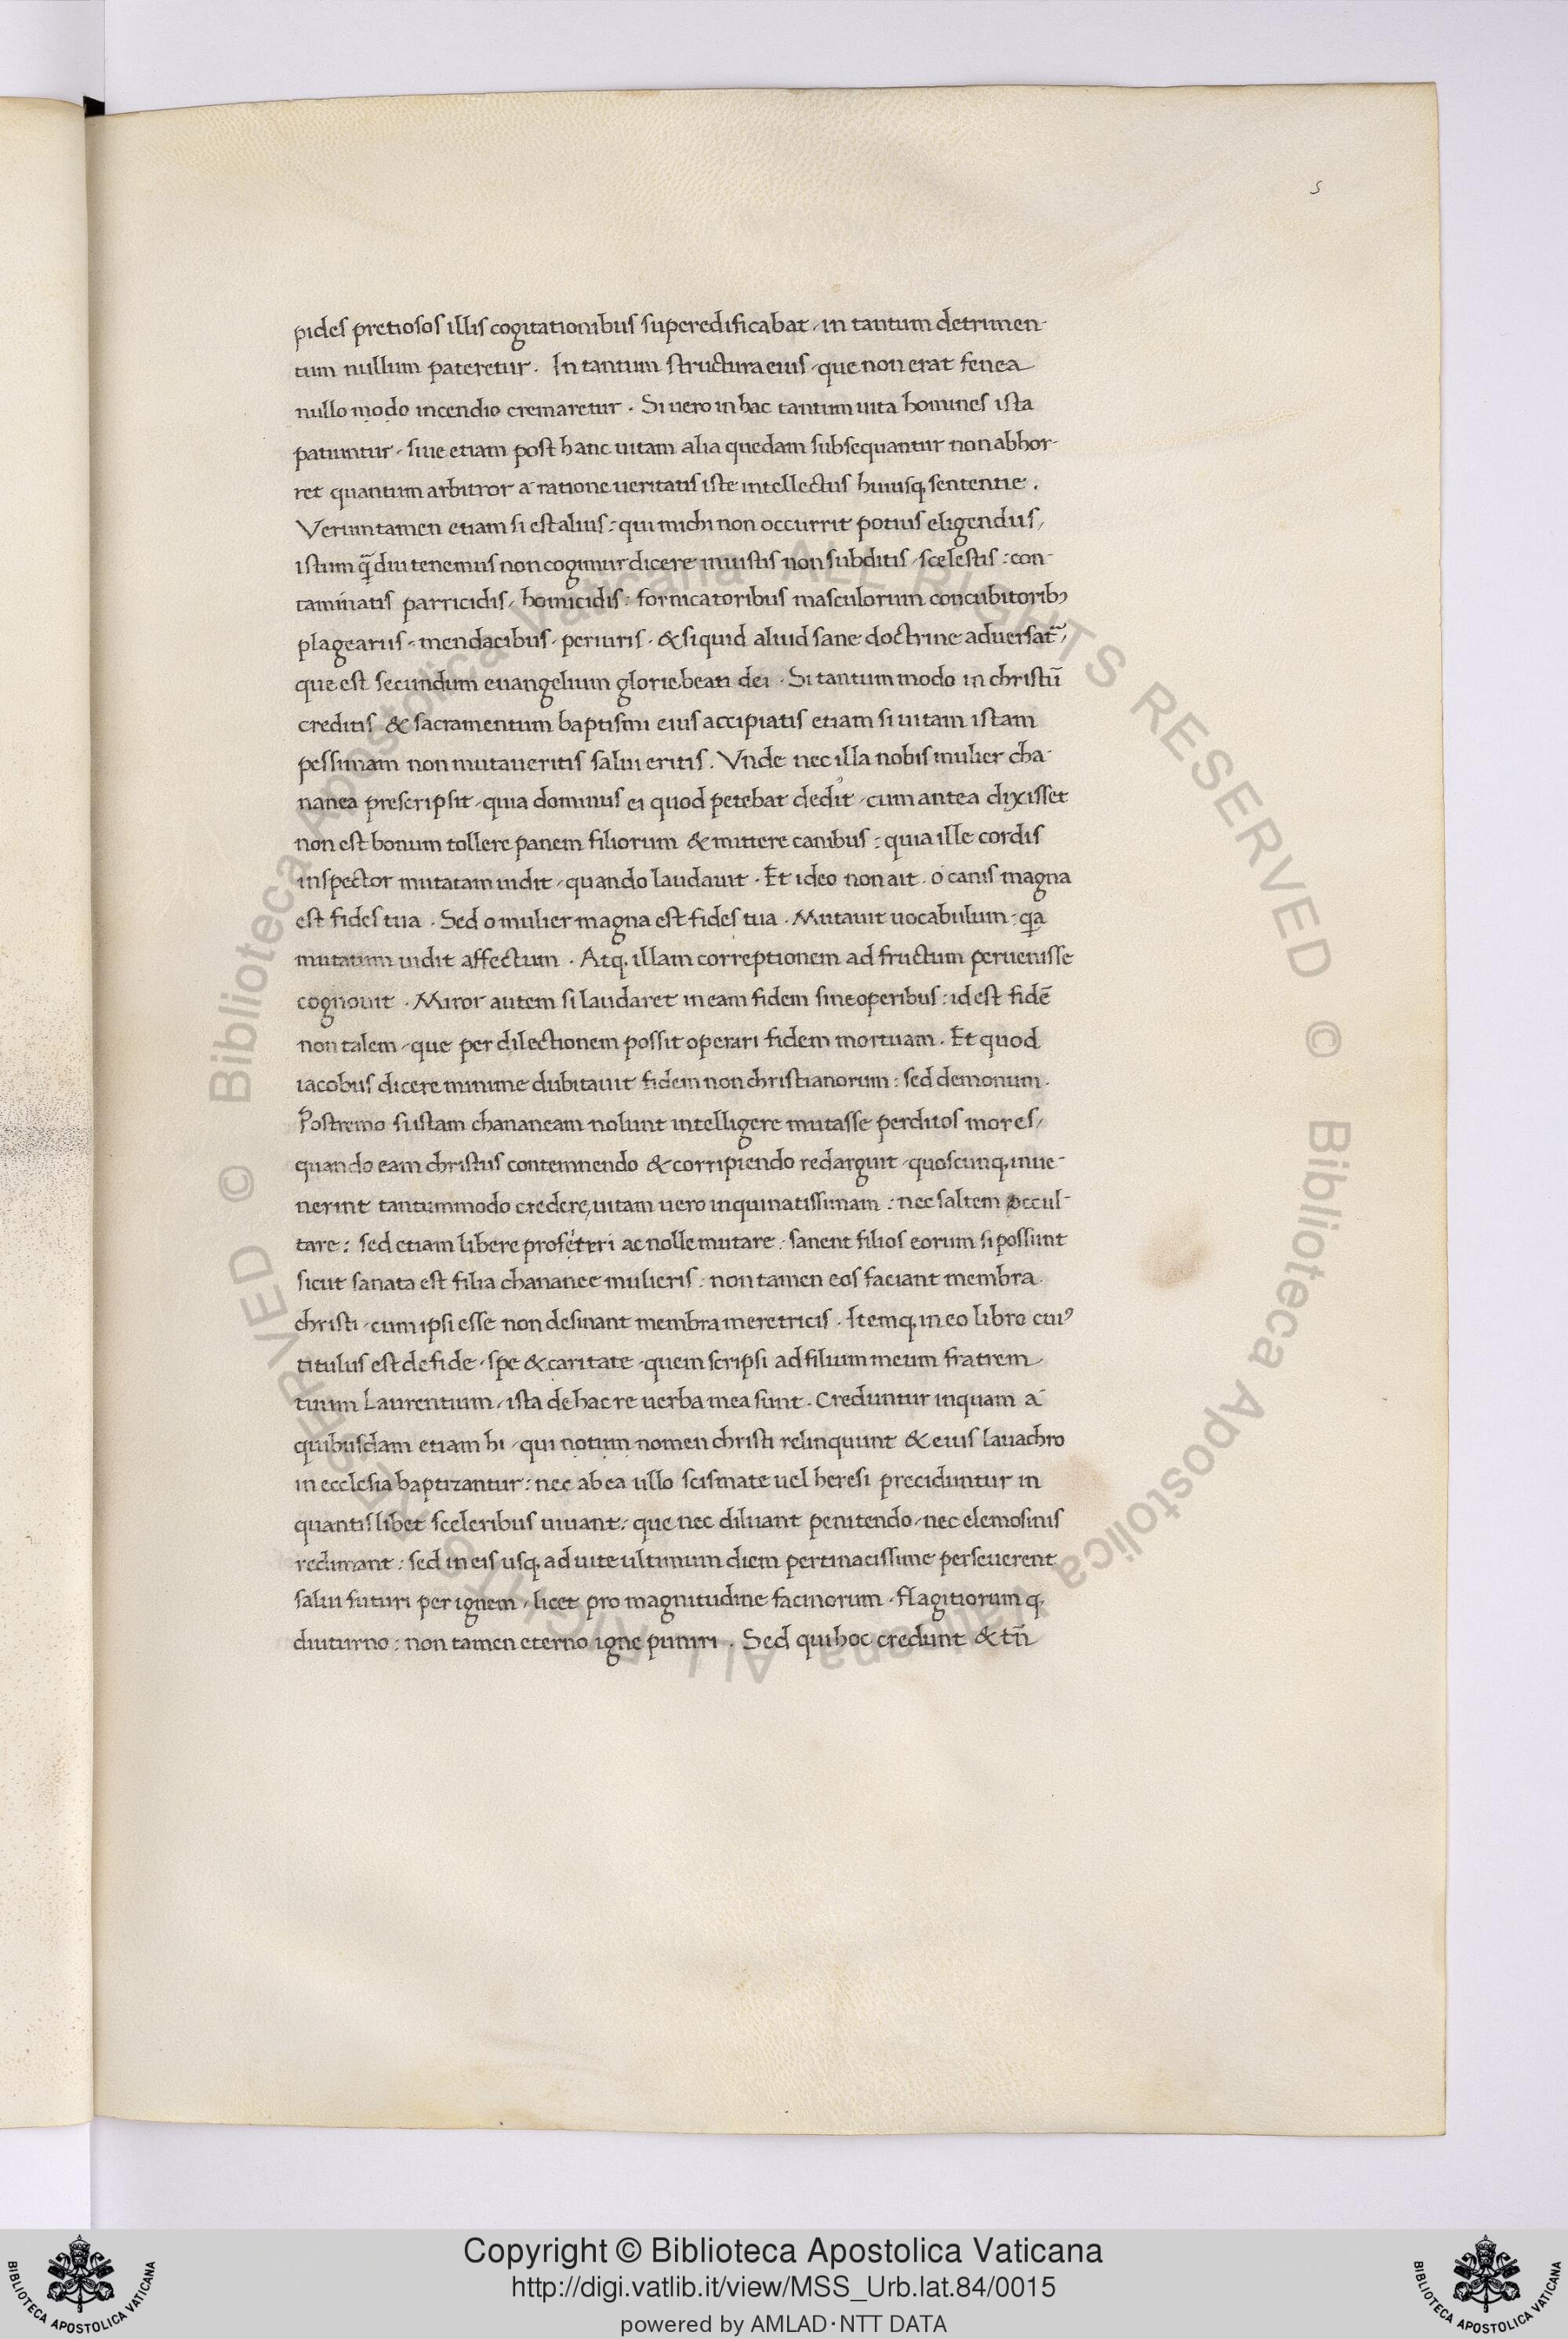 5
pides pretiosos illis cogitationibus superedificabat, in tantum detrimen-
tum nullum pateretur. In tantum structura eius, que non erat fenea
nullo modo incendio cremaretur. Si uero in hac tantum uita homines ista
patiuntur, siue etiam post hanc uitam alia quedam subsequantur non abhor-
ret quantum arbitror a ratione ueritatis iste intellectus huiusq; sententie.
Veruntamen etiam si est alius: qui michi non occurrit potius eligendus,
istum q̃diu tenemus non cogimur dicere iniustis non subditis, scelestis: con-
taminatis parricidis, homicidis: fornicatoribus masculorum concubitorib;
plageariis, mendacibus, periuris, & siquid aliud sane doctrine aduersat̃,
que est secundum euangelium glorie beati dei. Si tantum modo in christũ
creditis & sacramentum baptismi eius accipiatis etiam si uitam istam
pessimam non mutaueritis salui eritis. Vnde nec illa nobis mulier cha-
nanea prescripsit, quia dominus ei quod petebat dedit, cum antea dixisset
non est bonum tollere panem filiorum & mittere canibus: quia ille cordis
inspector mutatam uidit, quando laudauit. Et ideo non ait. o canis magna
est fides tua. Sed o mulier magna est fides tua. Mutauit uocabulum, qa
mutatum uidit affectum. Atq; illam correptionem ad fructum peruenisse
cognouit. Miror autem si laudaret in eam fidem sine operibus: id est fidẽ
non talem, que per dilectionem possit operari fidem mortuam. Et quod
iacobus dicere minime dubitauit fidem non christianorum: sed demonum.
Postremo si istam chananeam nolunt intelligere mutasse perditos mores,
quando eam christus contemnendo & corripiendo redarguit, quoscunq; inue-
nerint tantummodo credere, uitam uero inquinatissimam: nec saltem occul-
tare: sed etiam libere profiteri ac nolle mutare. sanent filios eorum si possunt
sicut sanata est filia chananee mulieris: non tamen eos faciant membra
christi, cum ipsi esse non desinant membra meretricis. Itemq; in eo libro cui⁹
titulus est de fide, spe & caritate, quem scripsi ad filium meum fratrem
tuum Laurentium, ista de hac re uerba mea sunt. Creduntur inquam a
quibusdam etiam hi, qui notum nomen christi relinquunt & eius lauachro
in ecclesia baptizantur: nec ab ea ullo scismate uel heresi preciduntur in
quantislibet sceleribus uiuant: que nec diluant penitendo, nec elemosinis
redimant: sed in eis usq; ad uite ultimum diem pertinacissime perseuerent
salui futuri per ignem, licet pro magnitudine facinorum, flagitiorum q;
diuturno: non tamen eterno igne puniri. Sed qui hoc credunt & tñ
© Biblioteca Apostolica Vaticana ALL RIGHTS RESERVED © Biblioteca Apostolica Vaticana ALL RIGHTS RESERVED
Copyright © Biblioteca Apostolica Vaticana
http://digi.vatlib.it/view/MSS_Urb.lat.84/0015
powered by AMLAD·NTT DATA
BIBLIOTECA APOSTOLICA VATICANA
BIBLIOTECA APOSTOLICA VATICANA